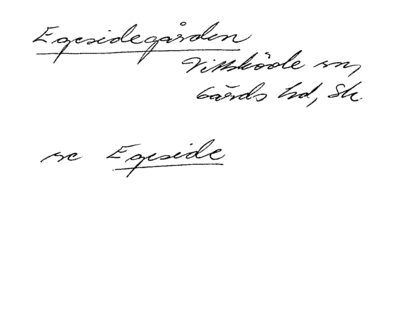 Egesidegården
Vittskövle sn,
Gärds hd, Sk.
se Egeside